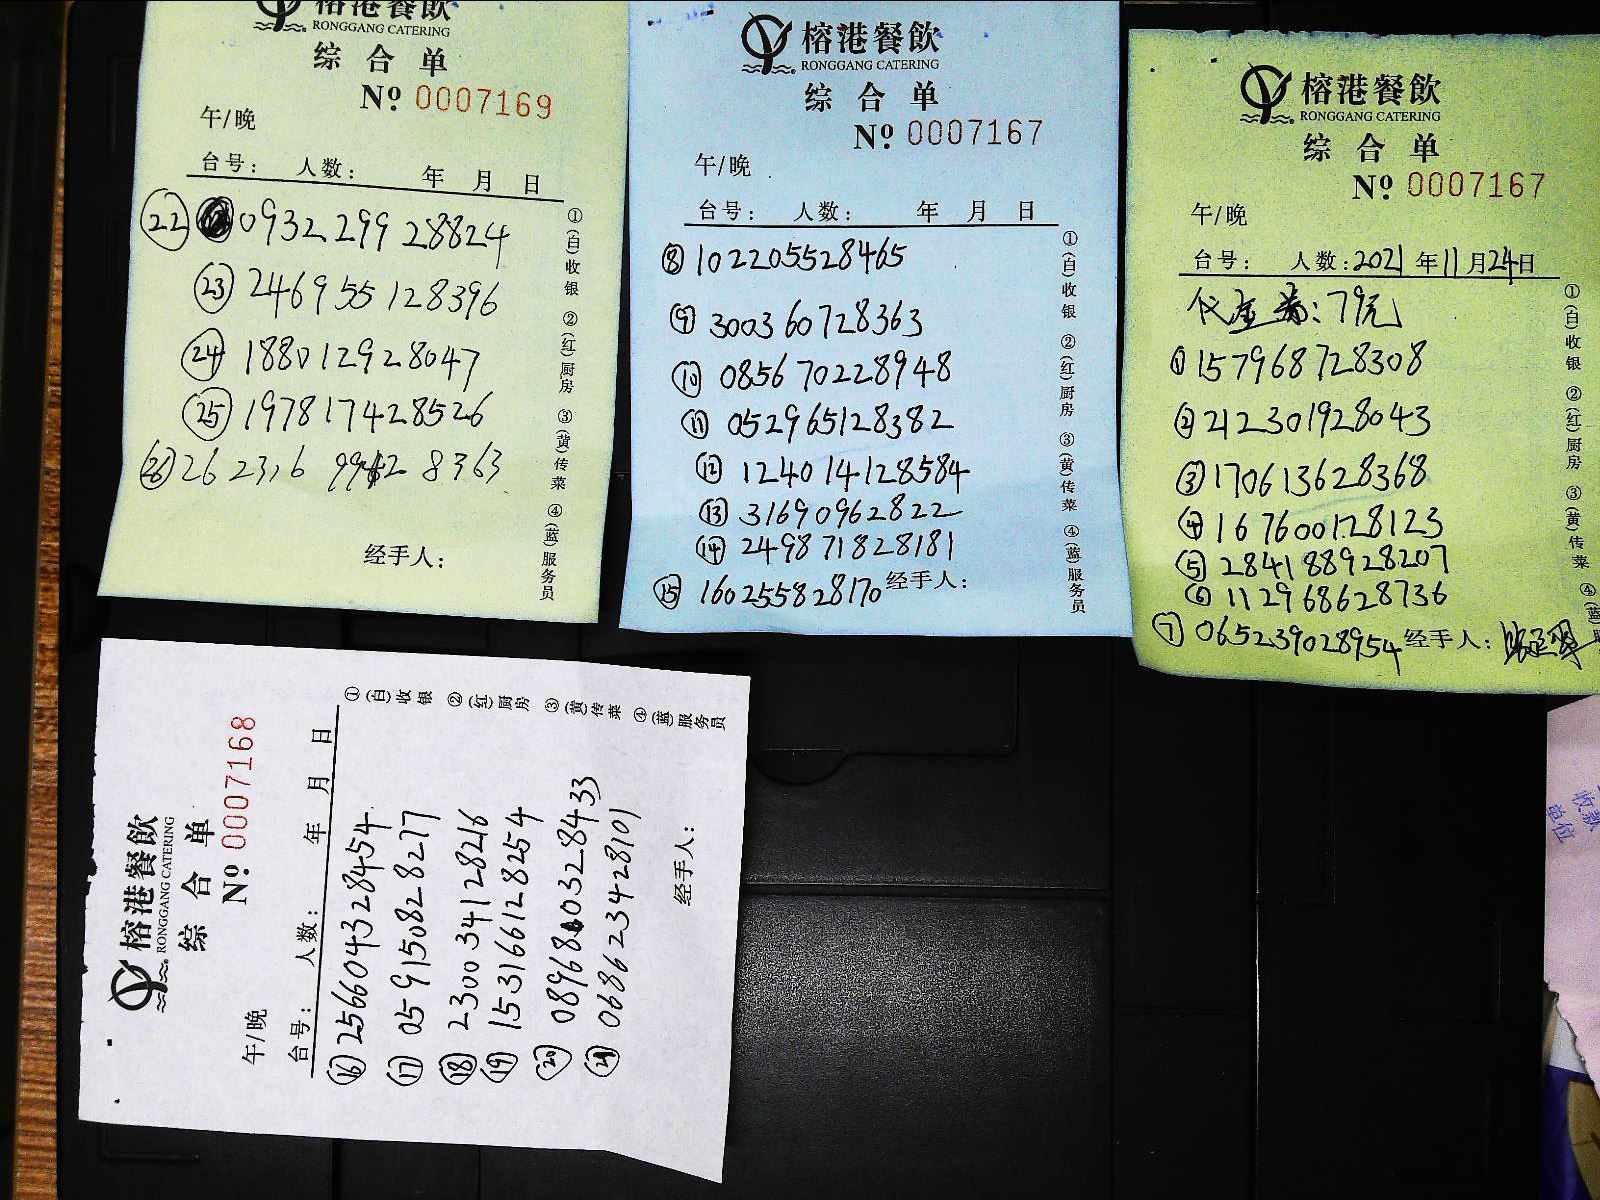 榕港餐飲
RONGGANG CATERING
综合单
Nº 0007169
午/晚
台号: 人数: 年 月 日
22 0932 299 28824
23 246955 128396
24 188012928047
25 197817428526
26 28363
经手人:
①(白)收银 ②(红)厨房 ③(黄)传菜 ④(蓝)服务员
榕港餐飲
RONGGANG CATERING
综合单
Nº 0007167
午/晚
台号: 人数: 年 月 日
⑧ 102205528465
⑨ 300360728363
⑩ 085670228948
⑪ 052965128382
⑫ 124014128584
⑬ 31690962822
⑭ 249871828181
⑮ 160255828170
经手人:
①(白)收银 ②(红)厨房 ③(黄)传菜 ④(蓝)服务员
榕港餐飲
RONGGANG CATERING
综合单
Nº 0007167
午/晚
台号: 人数: 2021年11月24日
代金券: 79元
① 157968728308
② 212301928043
③ 170613628368
④ 167600128123
⑤ 284188928207
⑥ 112968628736
⑦ 065239028954
经手人:
①(白)收银 ②(红)厨房 ③(黄)传菜 ④(蓝)
榕港餐飲
RONGGANG CATERING
综合单
Nº 0007168
午/晚
台号: 人数: 年 月 日
⑯ 256604328454
⑰ 059150828217
⑱ 230034128216
⑲ 153166128254
⑳ 089680328433
21 068623428101
经手人:
①(白)收银 ②(红)厨房 ③(黄)传菜 ④(蓝)服务员
收款
单位